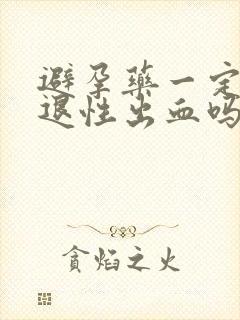 避孕药一定
退性出血吗
贪焰之火